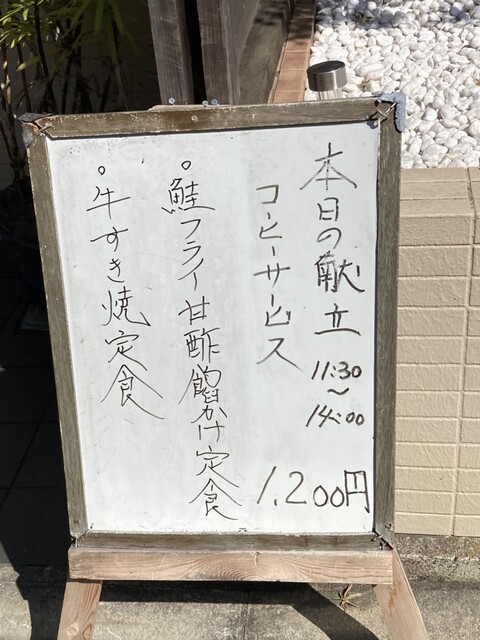 本日の献立 11:30〜14:00
コーヒーサービス 1,200円
。鮭フライ甘酢餡かけ定食
。牛すき焼定食